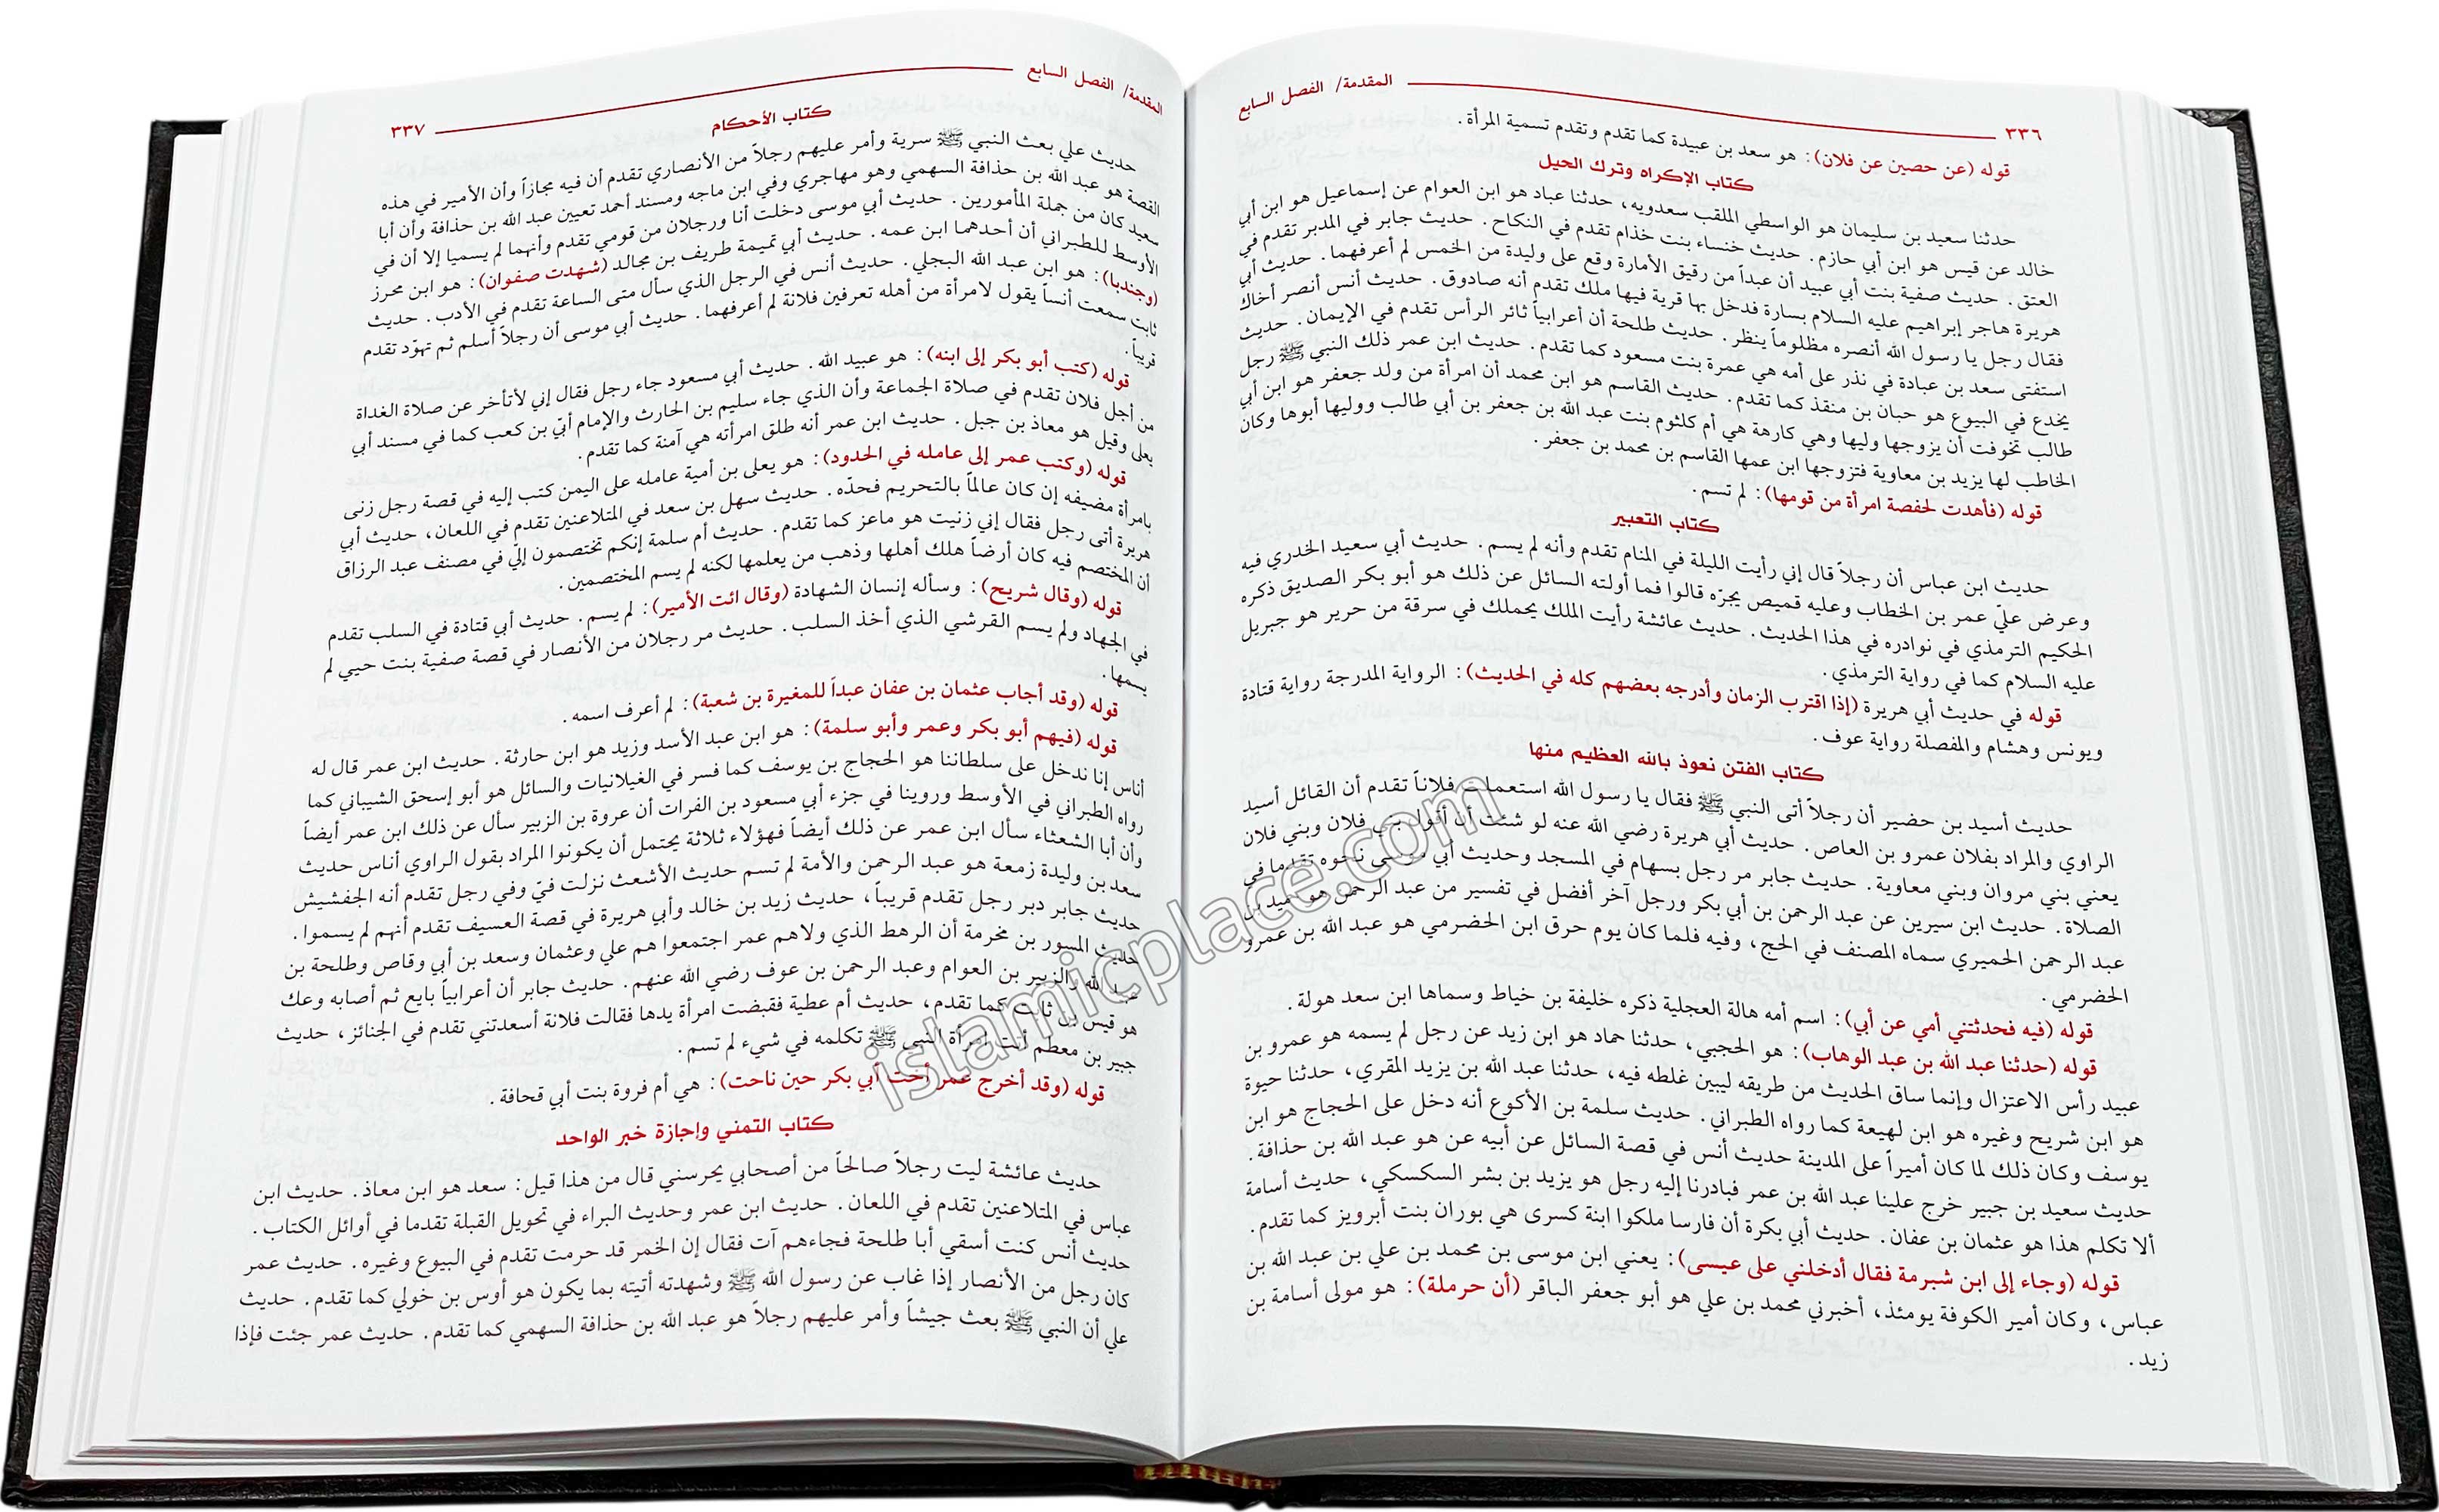 ٣٣٦ المقدمة/ الفصل السابع
قوله (عن حصين عن فلان): هو سعد بن عبيدة كما تقدم وتقدم تسمية المرأة.
كتاب الإكراه وترك الحيل
حدثنا سعيد بن سليمان هو الواسطي الملقب سعدويه، حدثنا عباد هو ابن العوام عن إسماعيل هو ابن أبي
خالد عن قيس هو ابن أبي حازم. حديث خنساء بنت خذام تقدم في النكاح. حديث جابر في المدبر تقدم في
العتق. حديث صفية بنت أبي عبيد أن عبداً من رقيق الأمارة وقع على وليدة من الخمس لم أعرفهما. حديث أبي
هريرة هاجر إبراهيم عليه السلام بسارة فدخل بها قرية فيها ملك تقدم أنه صادوق. حديث أنس أنصر أخاك
فقال رجل يا رسول الله أنصره مظلوماً ينظر. حديث طلحة أن أعرابياً ثائر الرأس تقدم في الإيمان. حديث
استفتى سعد بن عبادة في نذر على أمه هي عمرة بنت مسعود كما تقدم. حديث ابن عمر ذلك النبي ﷺ رجل
يخدع في البيوع هو حبان بن منقذ كما تقدم. حديث القاسم هو ابن محمد أن امرأة من ولد جعفر هو ابن أبي
طالب تخوفت أن يزوجها وليها وهي كارهة هي أم كلثوم بنت عبد الله بن جعفر بن أبي طالب ووليها أبوها وكان
الخاطب لها يزيد بن معاوية فتزوجها ابن عمها القاسم بن محمد بن جعفر.
قوله (فأهدت لحفصة امرأة من قومها): لم تسم.
كتاب التعبير
حديث ابن عباس أن رجلاً قال إني رأيت الليلة في المنام تقدم وأنه لم يسم. حديث أبي سعيد الخدري فيه
وعرض عليّ عمر بن الخطاب وعليه قميص يجرّه قالوا فما أولته السائل عن ذلك هو أبو بكر الصديق ذكره
الحكيم الترمذي في نوادره في هذا الحديث. حديث عائشة رأيت الملك يحملك في سرقة من حرير هو جبريل
عليه السلام كما في رواية الترمذي.
قوله في حديث أبي هريرة (إذا اقترب الزمان وأدرجه بعضهم كله في الحديث): الرواية المدرجة رواية قتادة
ويونس وهشام والمفصلة رواية عوف.
كتاب الفتن نعوذ بالله العظيم منها
حديث أسيد بن حضير أن رجلاً أتى النبي ﷺ فقال يا رسول الله استعملت فلاناً تقدم أن القائل أسيد
الراوي والمراد بفلان عمرو بن العاص. حديث أبي هريرة رضي الله عنه لو شئت أن أقول بني فلان وبني فلان
يعني بني مروان وبني معاوية. حديث جابر مر رجل بسهام في المسجد وحديث أبي نحوه تقدما في
الصلاة. حديث ابن سيرين عن عبد الرحمن بن أبي بكر ورجل آخر أفضل في تفسير من عبد الرحمن هو حميد بن
عبد الرحمن الحميري سماه المصنف في الحج، وفيه فلما كان يوم حرق ابن الحضرمي هو عبد الله بن عمرو
الحضرمي.
قوله (فيه فحدثتني أمي عن أبي): اسم أمه هالة العجلية ذكره خليفة بن خياط وسماها ابن سعد هولة.
قوله (حدثنا عبد الله بن عبد الوهاب): هو الحجبي، حدثنا حماد هو ابن زيد عن رجل لم يسمه هو عمرو بن
عبيد رأس الاعتزال وإنما ساق الحديث من طريقه ليبين غلطه فيه، حدثنا عبد الله بن يزيد المقري، حدثنا حيوة
هو ابن شريح وغيره هو ابن لهيعة كما رواه الطبراني. حديث سلمة بن الأكوع أنه دخل على الحجاج هو ابن
يوسف وكان ذلك لما كان أميراً على المدينة حديث أنس في قصة السائل عن أبيه عن هو عبد الله بن حذافة.
حديث سعيد بن جبير خرج علينا عبد الله بن عمر فبادرنا إليه رجل هو يزيد بن بشر السكسكي، حديث أسامة
ألا تكلم هذا هو عثمان بن عفان. حديث أبي بكرة أن فارسا ملكوا ابنة كسرى هي بوران بنت أبرويز كما تقدم.
قوله (وجاء إلى ابن شبرمة فقال أدخلني على عيسى): يعني ابن موسى بن محمد بن علي بن عبد الله بن
عباس، وكان أمير الكوفة يومئذ، أخبرني محمد بن علي هو أبو جعفر الباقر (أن حرملة): هو مولى أسامة بن
زيد.
المقدمة/ الفصل السابع ٣٣٧
كتاب الأحكام
حديث علي بعث النبي ﷺ سرية وأمر عليهم رجلاً من الأنصاري تقدم أن فيه مجازاً وأن الأمير في هذه
القصة هو عبد الله بن حذافة السهمي وهو مهاجري وفي ابن ماجه ومسند أحمد تعيين عبد الله بن حذافة وأن أبا
سعيد كان من جملة المأمورين. حديث أبي موسى دخلت أنا ورجلان من قومي تقدم وأنهما لم يسميا إلا أن في
الأوسط للطبراني أن أحدهما ابن عمه. حديث أبي تميمة طريف بن مجالد (شهدت صفوان): هو ابن محرز
(وجندبا): هو ابن عبد الله البجلي. حديث أنس في الرجل الذي سأل متى الساعة تقدم في الأدب. حديث
ثابت سمعت أنساً يقول لامرأة من أهله تعرفين فلانة لم أعرفهما. حديث أبي موسى أن رجلاً أسلم ثم تهوّد تقدم
قريباً.
قوله (كتب أبو بكر إلى ابنه): هو عبيد الله. حديث أبي مسعود جاء رجل فقال إني لأتأخر عن صلاة الغداة
من أجل فلان تقدم في صلاة الجماعة وأن الذي جاء سليم بن الحارث والإمام أبيّ بن كعب كما في مسند أبي
يعلى وقيل هو معاذ بن جبل. حديث ابن عمر أنه طلق امرأته هي آمنة كما تقدم.
قوله (وكتب عمر إلى عامله في الحدود): هو يعلى بن أمية عامله على اليمن كتب إليه في قصة رجل زنى
بامرأة مضيفه إن كان عالماً بالتحريم فحدّه. حديث سهل بن سعد في المتلاعنين تقدم في اللعان، حديث أبي
هريرة أتى رجل فقال إني زنيت هو ماعز كما تقدم. حديث أم سلمة إنكم تختصمون إليّ في مصنف عبد الرزاق
أن المختصم فيه كان أرضاً هلك أهلها وذهب من يعلمها لكنه لم يسم المختصمين.
قوله (وقال شريح): وسأله إنسان الشهادة (وقال ائت الأمير): لم يسم. حديث أبي قتادة في السلب تقدم
في الجهاد ولم يسم القرشي الذي أخذ السلب. حديث مر رجلان من الأنصار في قصة صفية بنت حيي لم
يسمها.
قوله (وقد أجاب عثمان بن عفان عبداً للمغيرة بن شعبة): لم أعرف اسمه.
قوله (فيهم أبو بكر وعمر وأبو سلمة): هو ابن عبد الأسد وزيد هو ابن حارثة. حديث ابن عمر قال له
أناس إنا ندخل على سلطاننا هو الحجاج بن يوسف كما فسر في الغيلانيات والسائل هو أبو إسحق الشيباني كما
رواه الطبراني في الأوسط وروينا في جزء أبي مسعود بن الفرات أن عروة بن الزبير سأل عن ذلك ابن عمر أيضاً
وأن أبا الشعثاء سأل ابن عمر عن ذلك أيضاً فهؤلاء ثلاثة يحتمل أن يكونوا المراد بقول الراوي أناس حديث
سعد بن وليدة زمعة هو عبد الرحمن والأمة لم تسم حديث الأشعث نزلت فيّ وفي رجل تقدم أنه الجفشيش
حديث جابر دبر رجل تقدم قريباً، حديث زيد بن خالد وأبي هريرة في قصة العسيف تقدم أنهم لم يسموا.
حديث المسور بن مخرمة أن الرهط الذي ولاهم عمر اجتمعوا هم علي وعثمان وسعد بن أبي وقاص وطلحة بن
عبد الله والزبير بن العوام وعبد الرحمن بن عوف رضي الله عنهم. حديث جابر أن أعرابياً بايع ثم أصابه وعك
هو قيس بن ثابت كما تقدم، حديث أم عطية فقبضت امرأة يدها فقالت فلانة أسعدتني تقدم في الجنائز، حديث
جبير بن معطم أتت امرأة النبي ﷺ تكلمه في شيء لم تسم.
قوله (وقد أخرج عمر أخت أبي بكر حين ناحت): هي أم فروة بنت أبي قحافة.
كتاب التمني وإجازة خبر الواحد
حديث عائشة ليت رجلاً صالحاً من أصحابي يحرسني قال من هذا قيل: سعد هو ابن معاذ. حديث ابن
عباس في المتلاعنين تقدم في اللعان. حديث ابن عمر وحديث البراء في تحويل القبلة تقدما في أوائل الكتاب.
حديث أنس كنت أسقي أبا طلحة فجاءهم آت فقال إن الخمر قد حرمت تقدم في البيوع وغيره. حديث عمر
كان رجل من الأنصار إذا غاب عن رسول الله ﷺ وشهدته أتيته بما يكون هو أوس بن خولي كما تقدم. حديث
علي أن النبي ﷺ بعث جيشاً وأمر عليهم رجلاً هو عبد الله بن حذافة السهمي كما تقدم. حديث عمر جئت فإذا
islamicplace.com